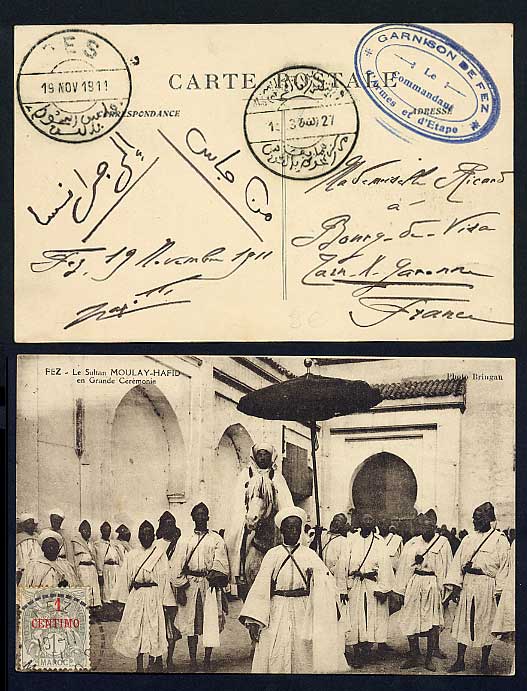 FES
19 NOV 1911
CARTE POSTALE
CORRESPONDANCE
ADRESSE
GARNISON DE FEZ
Le
Commandant
d'Armes et d'Etape
من فاس
إلى فرانسا
Fez, 19 Novembre 1911
Mademoiselle Ricard
à
Bourg-de-Visa
Tarn-&-Garonne
France
FEZ - Le Sultan MOULAY-HAFID
en Grande Cérémonie
Photo Bringau
1
CENTIMO
MAROC